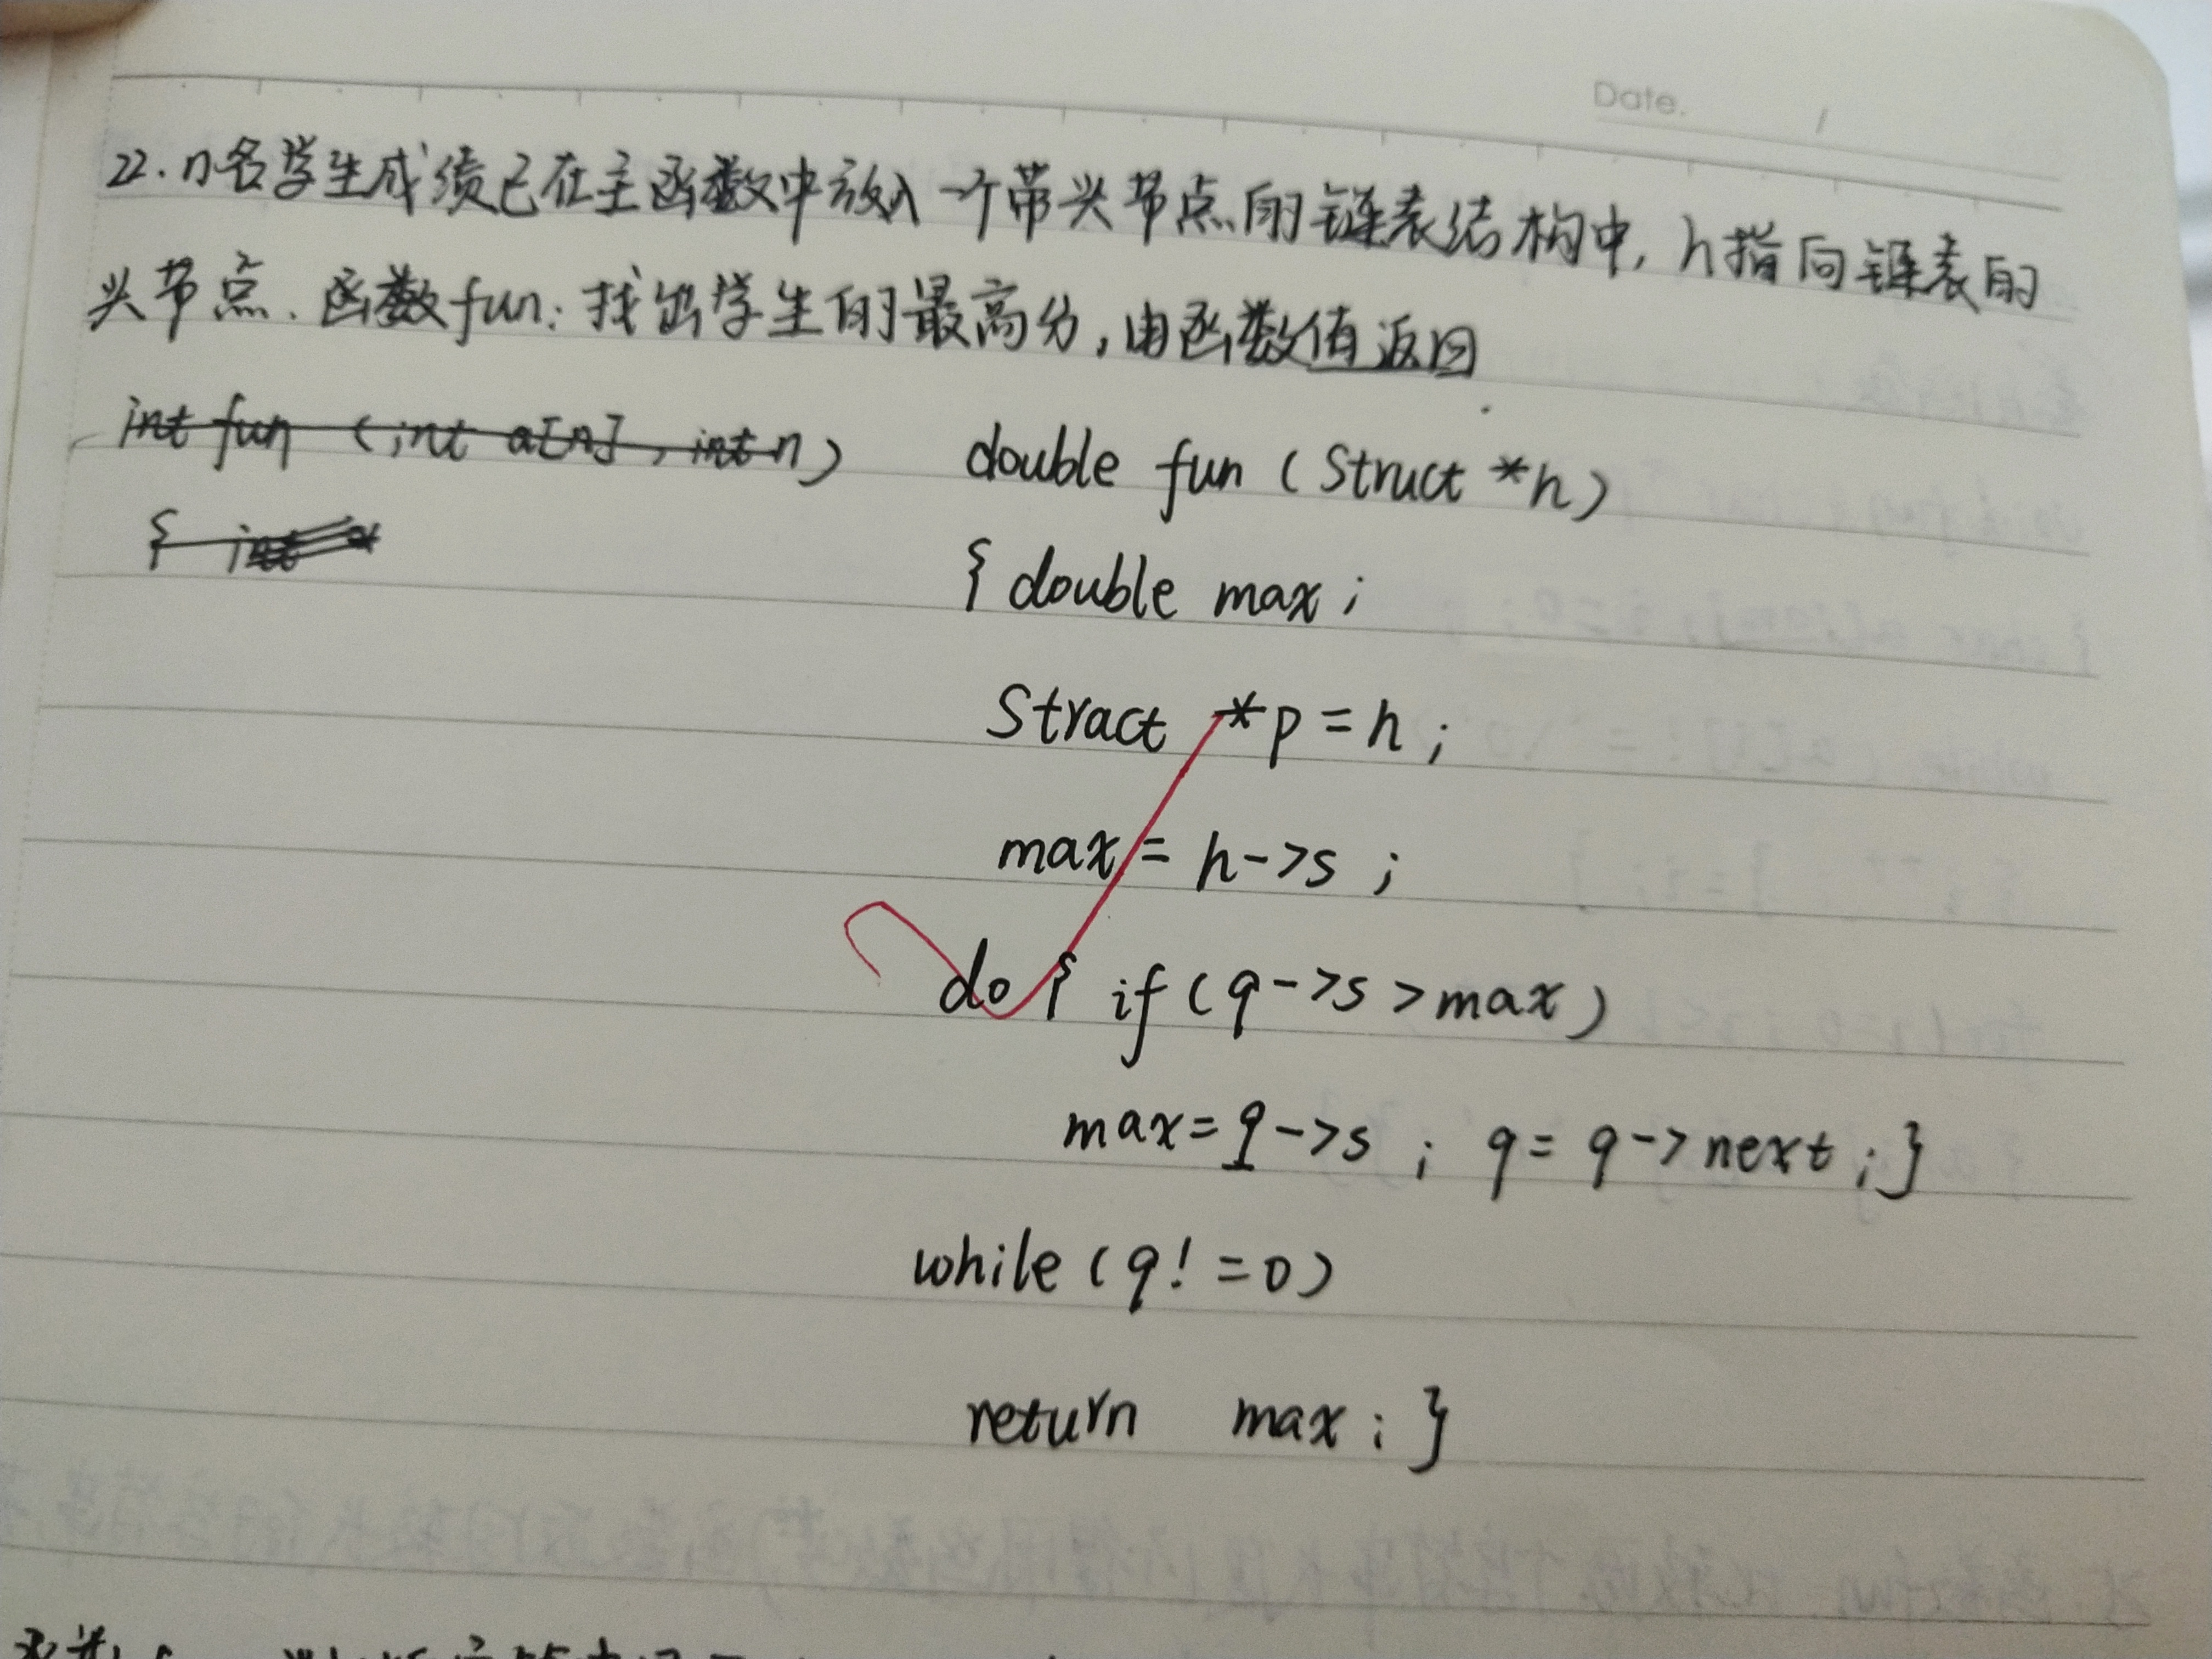 Date.
22. n名学生成绩已在主函数中放入一个带头节点的链表结构中, h指向链表的
头节点. 函数fun: 找出学生的最高分, 由函数值返回
int fun (int a[n], int n)
{ int
double fun (Struct *h)
{ double max ;
Struct *p = h ;
max = h->s ;
do { if (q->s > max)
max = q->s ; q = q->next ; }
while (q! = 0)
return max ; }